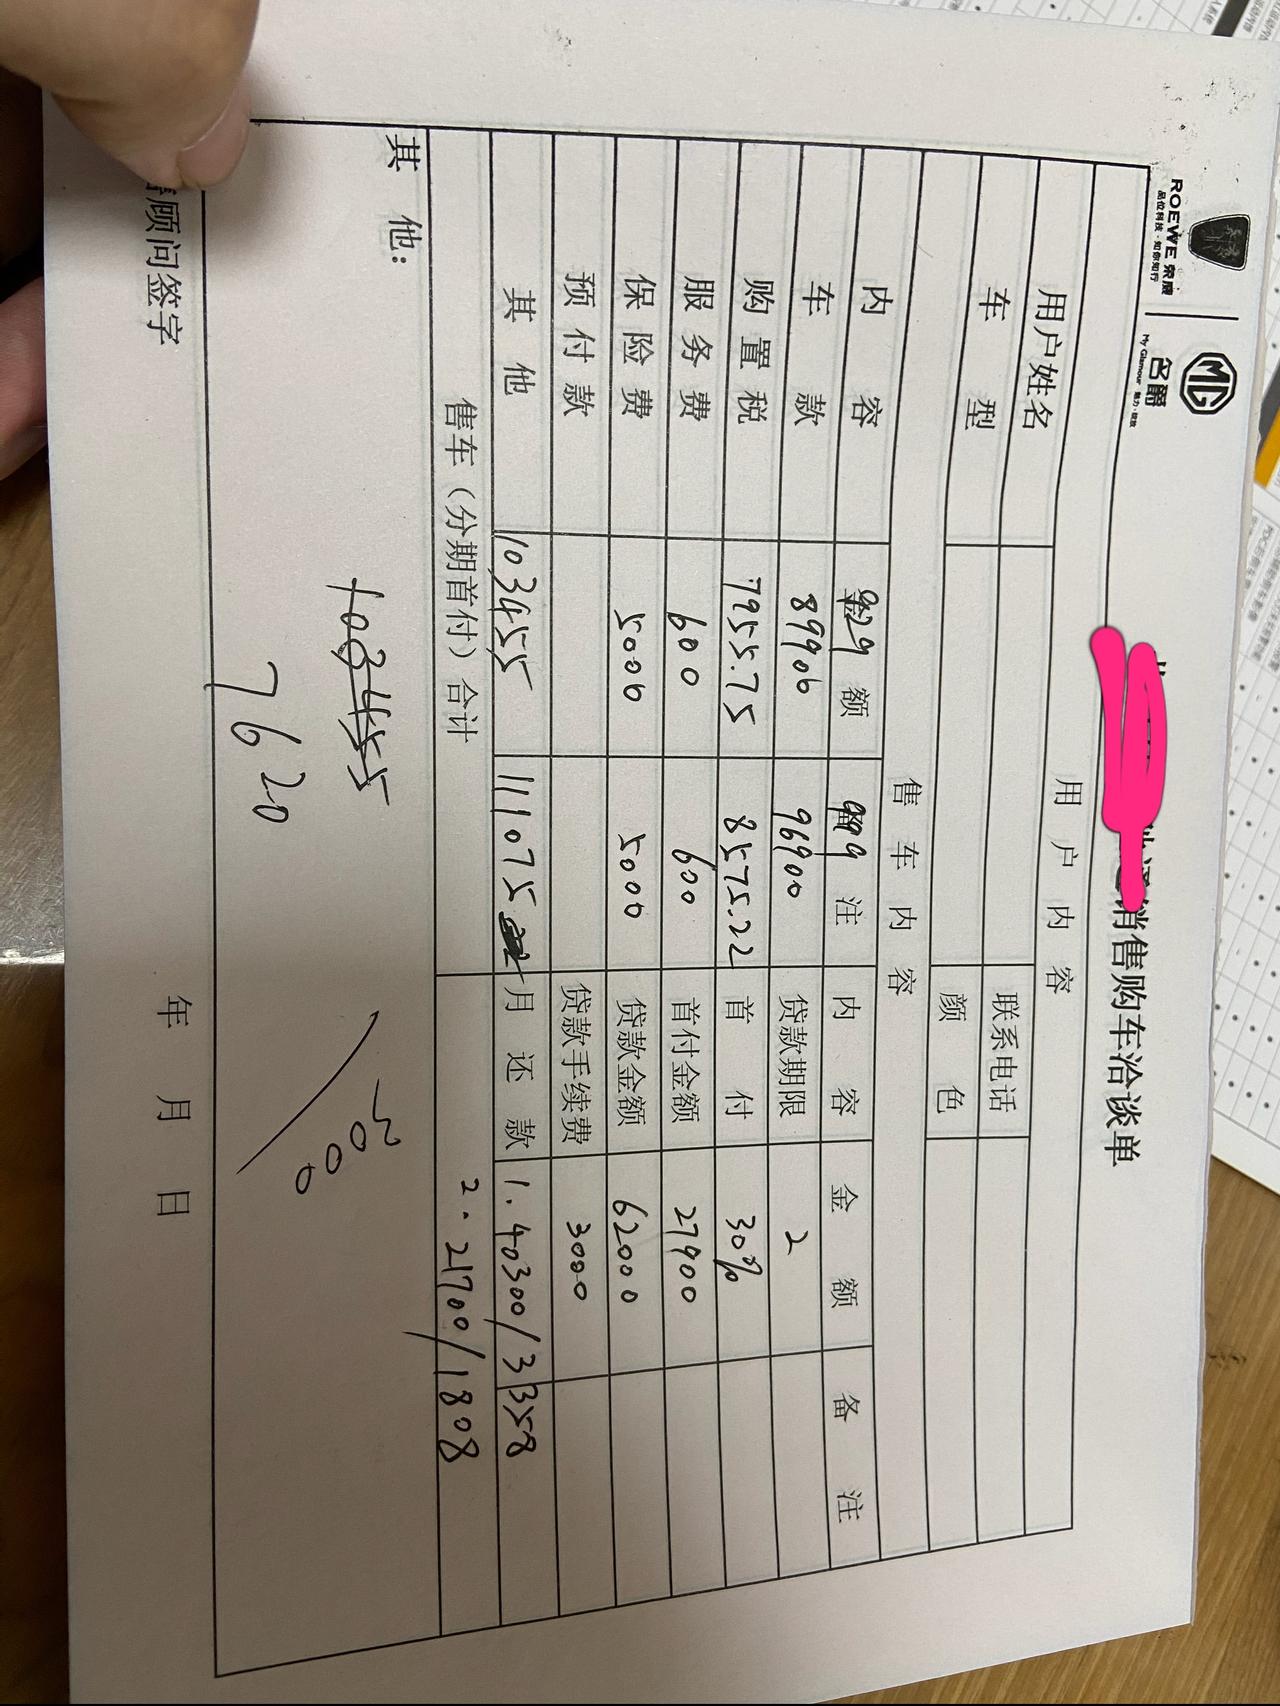 ROEWE 荣威
品位科技·知你知行
名爵
My Glamour 魅力·绽放
通销售购车洽谈单
用户内容
用户姓名 联系电话
车型 颜色
售车内容
内容 金额 备注 内容 金额 备注
929 999
车款 89900 96900 贷款期限 2
购置税 7955.75 8575.22 首付 30%
服务费 600 600 首付金额 27900
保险费 5000 5000 贷款金额 62000
预付款 贷款手续费 3000
其他 103455 111075 月还款 1. 40300/3358
售车（分期首付）合计 2. 21700/1808
其他:
103455
7620
5000
顾问签字 年 月 日